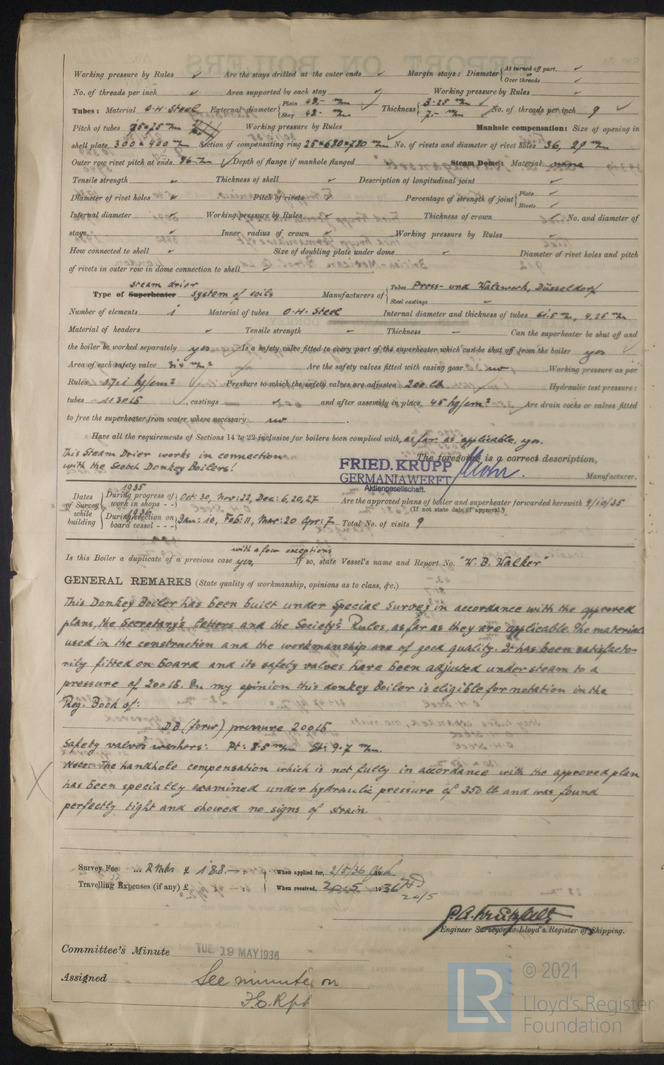 Working pressure by Rules ✓ Are the stays drilled at the outer ends ✓ Margin stays: Diameter { At turned off part, ✓ or Over threads ✓
No. of threads per inch ✓ Area supported by each stay ✓ Working pressure by Rules ✓
Tubes: Material O-H Steel External diameter { Plain 48,- m/m Stay 48,- m/m Thickness { 3.25 m/m 7,- m/m No. of threads per inch 9 ✓
Pitch of tubes 75×75 m/m Working pressure by Rules Manhole compensation: Size of opening in
shell plate 300×400 m/m Section of compensating ring No. of rivets and diameter of rivet holes 36, 29 m/m
Outer row rivet pitch at ends 86 m/m Depth of flange if manhole flanged Steam Dome: Material none
Tensile strength Thickness of shell Description of longitudinal joint
Diameter of rivet holes Pitch of rivets Percentage of strength of joint { Plate Rivets
Internal diameter Working pressure by Rules Thickness of crown No. and diameter of
stays Inner radius of crown Working pressure by Rules
How connected to shell Size of doubling plate under dome Diameter of rivet holes and pitch
of rivets in outer row in dome connection to shell
steam drier
Type of Superheater system of coils Manufacturers of { Tubes Press- und Walzwerk, Düsseldorf Steel castings
Number of elements 1 Material of tubes O-H-Steel Internal diameter and thickness of tubes 61.5 m/m, 4.25 m/m
Material of headers Tensile strength Thickness Can the superheater be shut off and
the boiler be worked separately yes Is a safety valve fitted to every part of the superheater which can be shut off from the boiler yes
Area of each safety valve Are the safety valves fitted with easing gear Working pressure as per
Rules kg/cm² Pressure to which the safety valves are adjusted 200 lb Hydraulic test pressure:
tubes castings and after assembly in place 45 kg/cm² Are drain cocks or valves fitted
to free the superheater from water where necessary
Have all the requirements of Sections 14 to 22 inclusive for boilers been complied with, as far as applicable, yes.
This Steam Drier works in connection
with the Scotch Donkey Boilers!
The foregoing is a correct description,
FRIED. KRUPP
GERMANIAWERFT
Aktiengesellschaft.
Manufacturer.
Dates of Survey while building { During progress of work in shops - - 1935 Oct 30, Nov: 22, Dec: 6, 20, 27 During erection on board vessel - - 1936 Jan: 10, Feb: 11, Mar: 20 Apr: 7
Are the approved plans of boiler and superheater forwarded herewith 9/10/35
(If not state date of approval.)
Total No. of visits 9
Is this Boiler a duplicate of a previous case yes, with a few exceptions If so, state Vessel's name and Report No. "W. B. Walker"
GENERAL REMARKS (State quality of workmanship, opinions as to class, &c.)
This Donkey Boiler has been built under Special Survey in accordance with the approved
plans, the Secretary's letters and the Society's Rules, as far as they are applicable. The materials
used in the construction and the workmanship are of good quality. It has been satisfacto-
rily fitted on board and its safety valves have been adjusted under steam to a
pressure of 200 lb. In my opinion this donkey Boiler is eligible for notation in the
Reg. Book of:
DB (forw) pressure 200 lb
Safety valves washers: Pt: 8.5 m/m St: 9.7 m/m.
Note: The handhole compensation which is not fully in accordance with the approved plan
has been specially examined under hydraulic pressure of 350 lb and was found
perfectly tight and showed no signs of strain.
Survey Fee ... RMks £ 188.- When applied for, 2/5/36
Travelling Expenses (if any) £ When received, 20.5 1936
20/5
Engineer Surveyor to Lloyd's Register of Shipping.
Committee's Minute TUE 19 MAY 1936
Assigned See minute on
F.E. Rpt
© 2021
LR
Lloyd's Register
Foundation